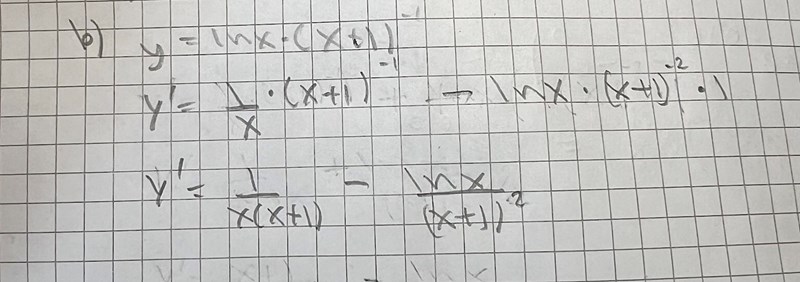 b) y = lnx · (x+1)⁻¹
y' = 1/x · (x+1)⁻¹ - lnx · (x+1)⁻² · 1
y' = 1/x(x+1) - lnx/(x+1)⁻²